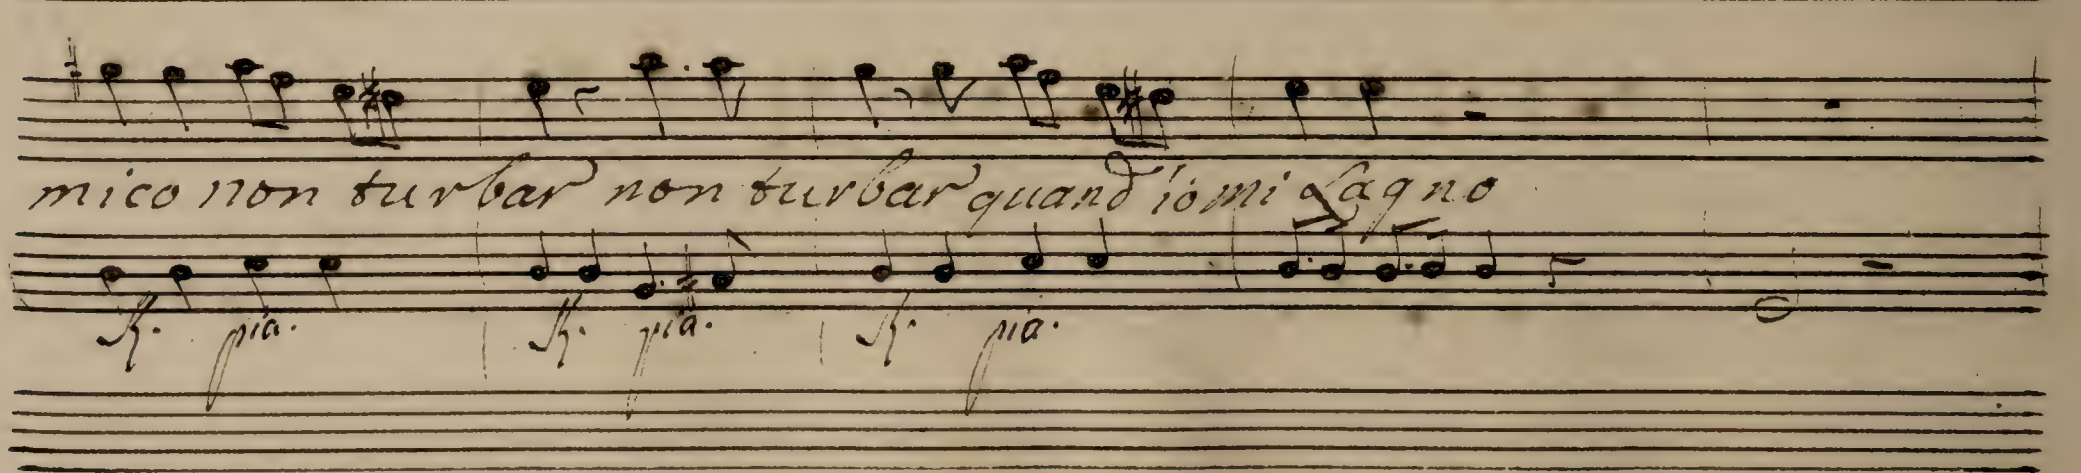 mico non turbar non turbar quand io mi Lagno
pia. pia. pia.